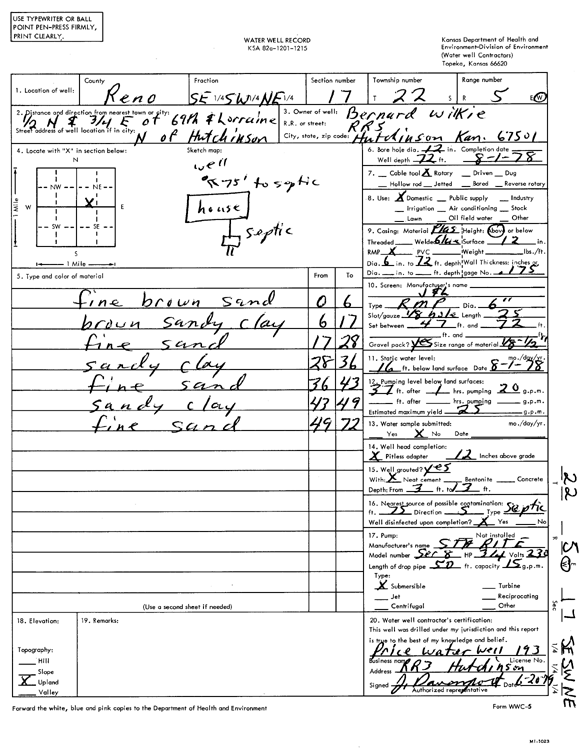 USE TYPEWRITER OR BALL
POINT PEN-PRESS FIRMLY,
PRINT CLEARLY.
WATER WELL RECORD
KSA 82a-1201-1215
Kansas Department of Health and
Environment-Division of Environment
(Water well Contractors)
Topeka, Kansas 66620
1. Location of well: County Reno Fraction SE 1/4 SW 1/4 NE 1/4 Section number 17 Township number T 22 S Range number R 5 E/W
2. Distance and direction from nearest town or city: 1/2 N & 3/4 E of 69th & Lorraine
Street address of well location if in city: N of Hutchinson
3. Owner of well: Bernard Wilkie
R.R. or street: RR5
City, state, zip code: Hutchinson Kan. 67501
4. Locate with "X" in section below:
N
NW NE
X
W E
SW SE
S
1 Mile
1 Mile
Sketch map:
well
75' to septic
house
septic
5. Type and color of material From To
fine brown sand 0 6
brown sandy clay 6 17
fine sand 17 28
sandy clay 28 36
fine sand 36 43
sandy clay 43 49
fine sand 49 72
(Use a second sheet if needed)
6. Bore hole dia. 12 in. Completion date
Well depth 72 ft. 8-1-78
7. Cable tool X Rotary Driven Dug
Hollow rod Jetted Bored Reverse rotary
8. Use: X Domestic Public supply Industry
Irrigation Air conditioning Stock
Lawn Oil field water Other
9. Casing: Material Plas Height: Above or below
Threaded Welded Glue Surface 12 in.
RMP X PVC Weight lbs./ft.
Dia. 6 in. to 72 ft. depth Wall Thickness: inches or
Dia. in. to ft. depth gage No. .175
10. Screen: Manufacturer's name
J & L
Type RMP Dia. 6"
Slot/gauze 1/8 hole Length 25
Set between 47 ft. and 72 ft.
ft. and ft.
Gravel pack? yes Size range of material 1/8-1/2
11. Static water level: mo./day/yr.
16 ft. below land surface Date 8-1-78
12. Pumping level below land surfaces:
37 ft. after 1 hrs. pumping 20 g.p.m.
ft. after hrs. pumping g.p.m.
Estimated maximum yield 25 g.p.m.
13. Water sample submitted: mo./day/yr.
Yes X No Date
14. Well head completion:
X Pitless adapter 12 Inches above grade
15. Well grouted? yes
With: X Neat cement Bentonite Concrete
Depth: From 3 ft. to 13 ft.
16. Nearest source of possible contamination:
ft. 75 Direction S Type septic
Well disinfected upon completion? X Yes No
17. Pump: Not installed
Manufacturer's name STA RITE
Model number Ser 8 HP 3/4 Volts 230
Length of drop pipe 50 ft. capacity 15 g.p.m.
Type:
X Submersible Turbine
Jet Reciprocating
Centrifugal Other
18. Elevation:
Topography:
Hill
Slope
X Upland
Valley
19. Remarks:
20. Water well contractor's certification:
This well was drilled under my jurisdiction and this report
is true to the best of my knowledge and belief.
Price water well 193
Business name License No.
Address RR3 Hutchinson
Signed J. Davenport Date 6-20-79
Authorized representative
Forward the white, blue and pink copies to the Department of Health and Environment
Form WWC-5
T 22 R 5 E/W Sec 17 1/4 1/4 1/4 SE SW NE